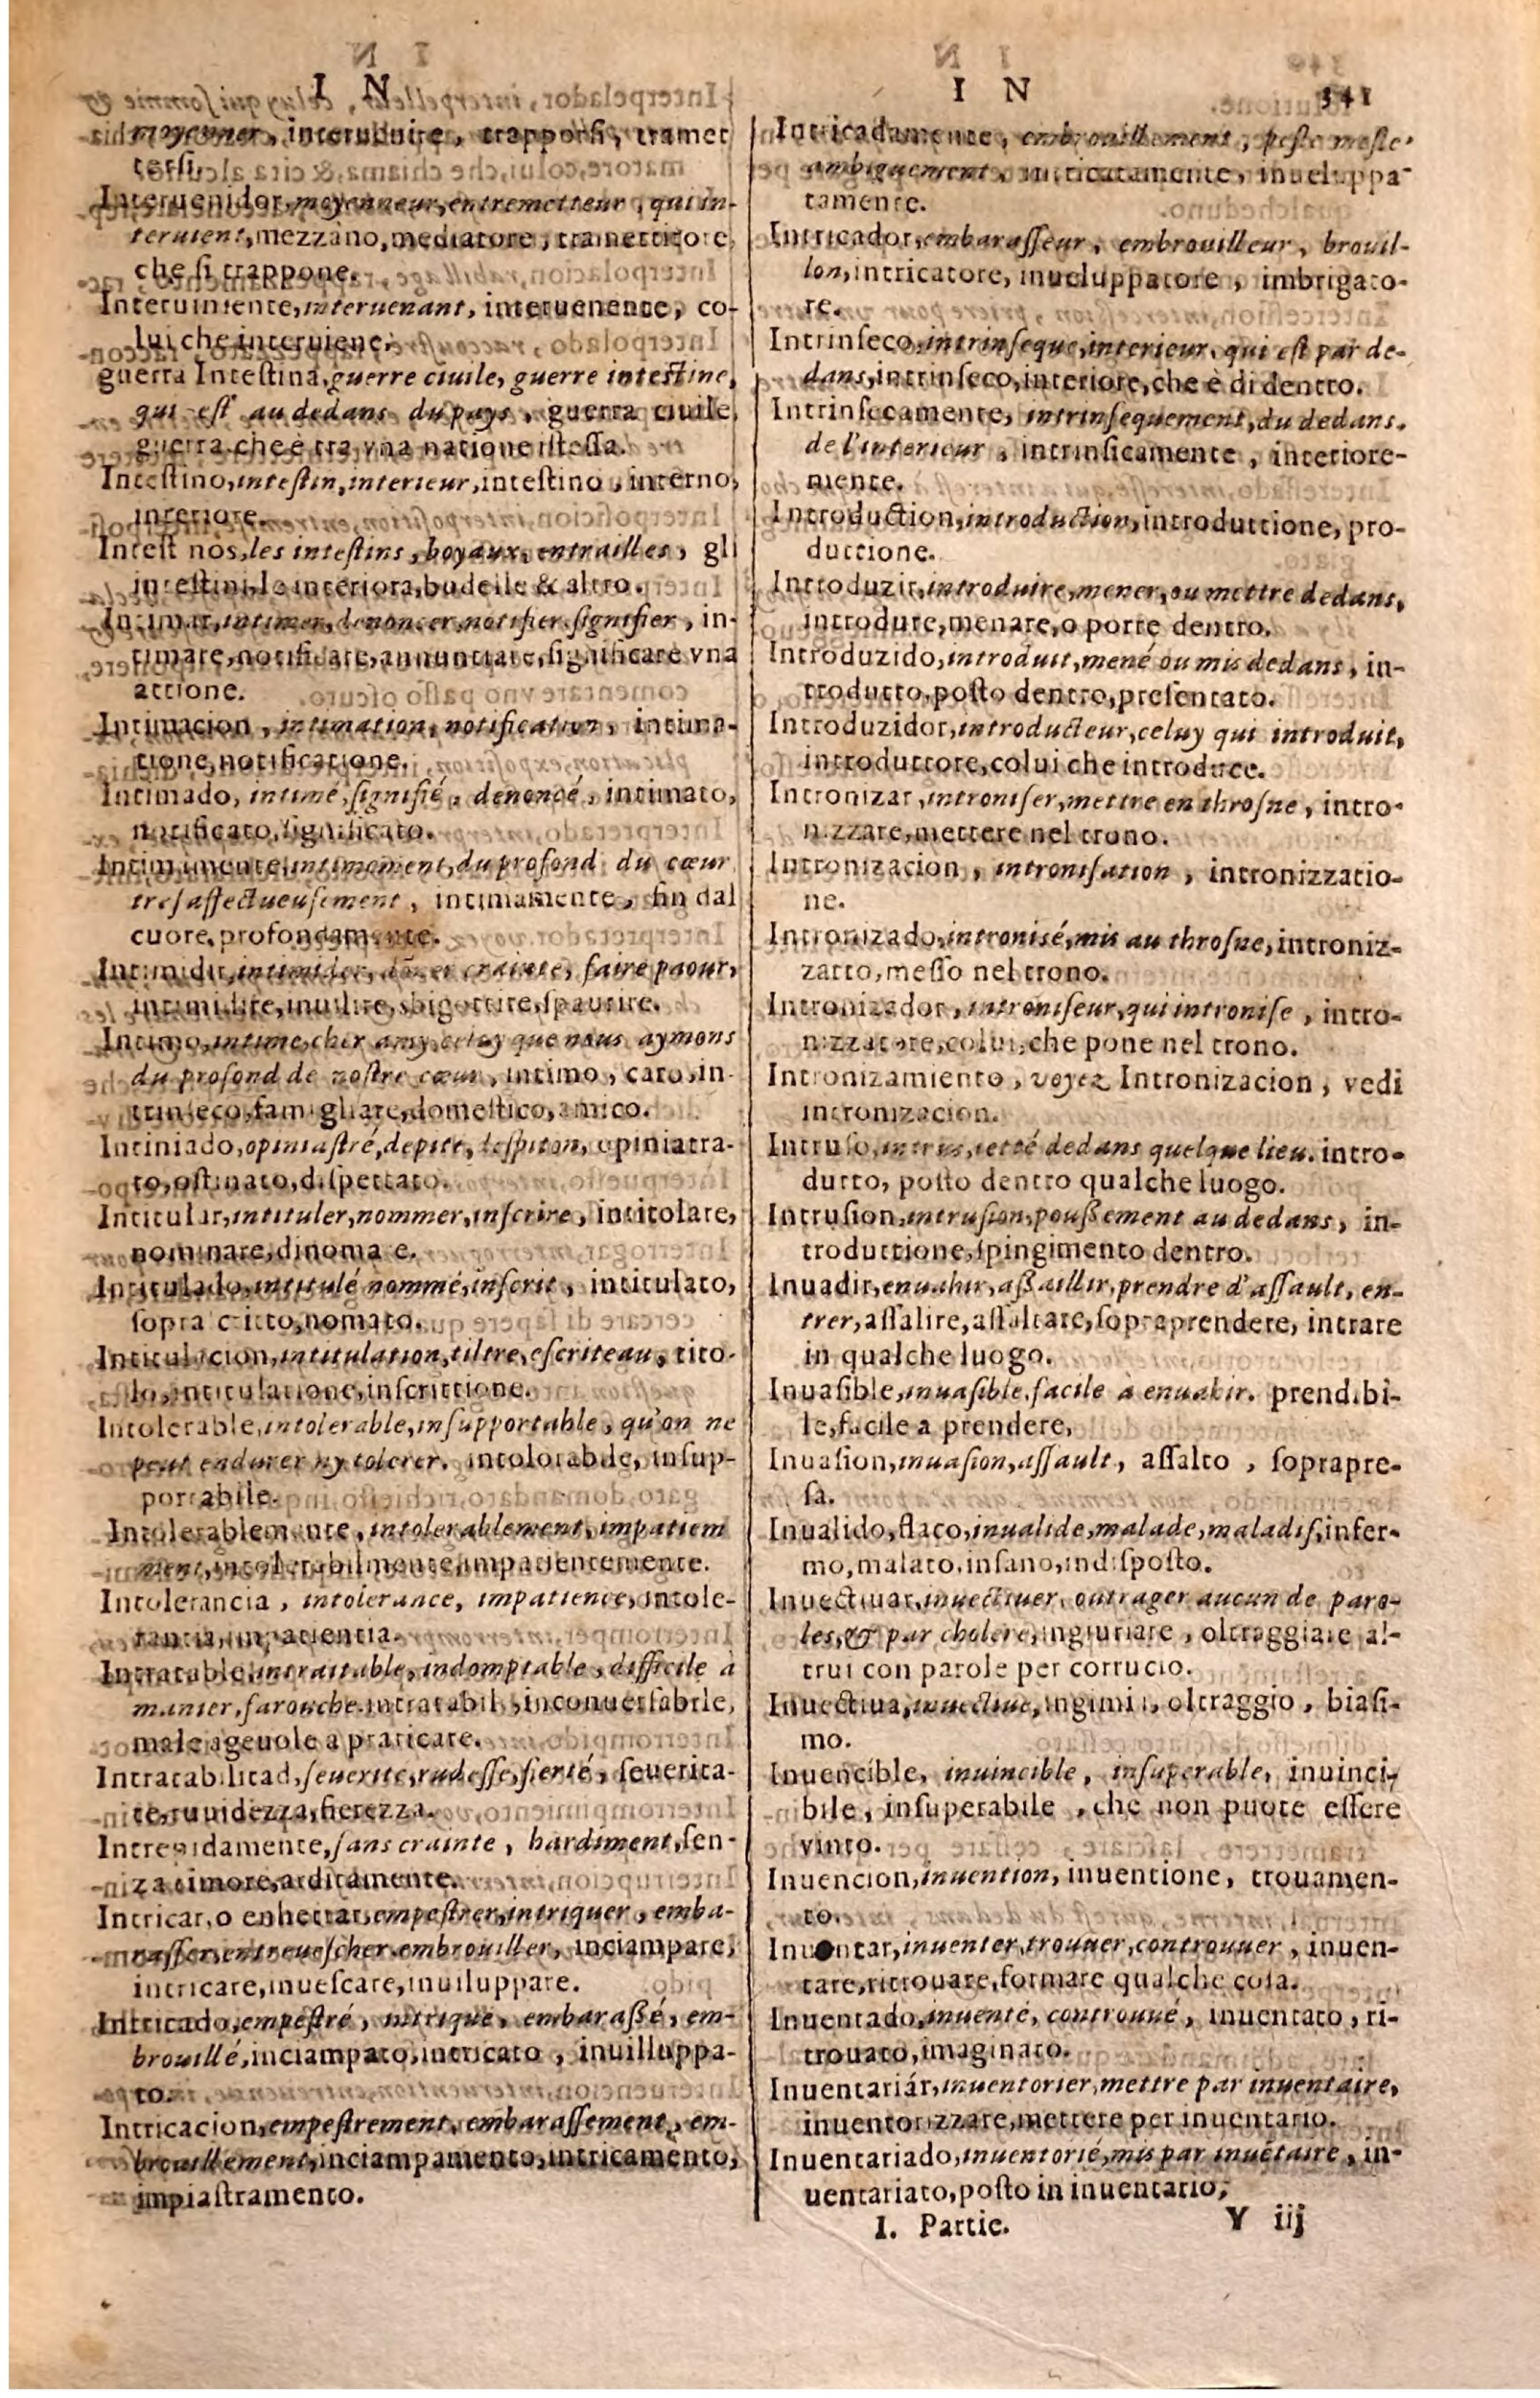 I N
moyenner, interuenire, trapporsi, tramet
tersi.
Interuenidor, moyenneur, entremetteur, qui in-
teruient, mezzano, mediatore, tramettitore,
che si trappone.
Interuiniente, interuenant, interuenente, co-
lui che interuiene.
guerra Intestina, guerre ciuile, guerre intestine,
qui est au dedans du pays, guerra ciuile,
guerra che è tra vna natione istessa.
Intestino, intestin, interieur, intestino, interno,
interiore.
Intest nos, les intestins, boyaux, entrailles, gli
intestini, le interiora, budelle & altro.
Intimar, intimer, denoncer, notifier, signifier, in-
timare, notificare, annuntiare, significare vna
attione.
Intimacion, intimation, notification, intima-
tione, notificatione.
Intimado, intimé, signifié, denoncé, intimato,
notificato, significato.
Intimamente, intimement, du profond du cœur
tresaffectueusement, intimamente, fin dal
cuore, profondamente.
Intimidir, intimider, dõner crainte, faire paour,
intimidire, inuilire, sbigottire, spaurire.
Intimo, intime, cher amy, celuy que nous aymons
du profond de nostre cœur, intimo, caro, in-
trinseco, famigliare, domestico, amico.
Intiniado, opiniastré, depite, despiton, opiniatra-
to, ostinato, dispettato.
Intitular, intituler, nommer, inscrire, intitolare,
nominare, dinoma e.
Intitulado, intitulé nommé, inscrit, intitulato,
sopra critto, nomato.
Intitulacion, intitulation, tiltre, escriteau, tito-
lo, intitulatione, inscrittione.
Intolerable, intolerable, insupportable, qu'on ne
peut endurer ny tolerer, intolorabile, insup-
portabile.
Intolerablemente, intolerablement, impatiem
ment, intolerabilmente, impatientemente.
Intolerancia, intolerance, impatience, intole-
rantia, impatientia.
Intratable, intraitable, indomptable, difficile à
manier, farouche, intratabil, inconuersabile,
male ageuole a praticare.
Intratabilitad, seuerite, rudesse, fierté, seuerita-
te, ruuidezza, fierezza.
Intrepidamente, sans crainte, hardiment, sen-
za timore, arditamente.
Intricar, o enhetrar, empestrer, intriquer, emba-
rasser, entreuescher, embrouiller, inciampare,
intricare, inuescare, inuiluppare.
Intricado, empestré, intriqué, embaraßé, em-
brouillé, inciampato, intricato, inuilluppa-
to.
Intricacion, empestrement, embarassement, em-
brouillement, inciampamento, intricamento,
impiastramento.
I N 341
Intricadamente, embrouillement, peste mesle,
ambiguement, intricatamente, inueluppa-
tamente.
Intricador, embarasseur, embrouilleur, brouil-
lon, intricatore, inueluppatore, imbrigato-
re.
Intrinseco, intrinseque, interieur, qui est par de-
dans, intrinseco, interiore, che è di dentro.
Intrinsecamente, intrinsequement, du dedans,
de l'interieur, intrinsicamente, interiore-
mente.
Introduction, introduction, introduttione, pro-
duttione.
Introduzir, introduire, mener, ou mettre dedans,
introdure, menare, o porre dentro.
Introduzido, introduit, mené ou mis dedans, in-
trodutto, posto dentro, presentato.
Introduzidor, introducteur, celuy qui introduit,
introduttore, colui che introduce.
Intronizar, introniser, mettre en throsne, intro-
nizzare, mettere nel trono.
Intronizacion, intronisation, intronizzatio-
ne.
Intronizado, intronisé, mis au throsne, introniz-
zatto, messo nel trono.
Intronizador, introniseur, qui intronise, intro-
nizzatore, colui, che pone nel trono.
Intronizamiento, voyez Intronizacion, vedi
intronizacion.
Intruso, intrus, ietté dedans quelque lieu. intro-
durto, posto dentro qualche luogo.
Intrusion, intrusion, poußement au dedans, in-
troduttione, spingimento dentro.
Inuadir, enuahir, aßaillir, prendre d'assault, en-
trer, assalire, assaltare, sopraprendere, intrare
in qualche luogo.
Inuasible, inuasible, facile à enuahir. prendibi-
le, facile a prendere,
Inuasion, inuasion, assault, assalto, soprapre-
sa.
Inualido, flaco, inualide, malade, maladif, infer-
mo, malato, insano, indisposto.
Inuectiuar, inuectiuer, outrager aucun de paro-
les, & par cholere, ingiuriare, oltraggiare al-
trui con parole per corrucio.
Inuectiua, inuectiue, ingimia, oltraggio, biasi-
mo.
Inuencible, inuincible, insuperable, inuinci-
bile, insuperabile, che non puote essere
vinto.
Inuencion, inuention, inuentione, trouamen-
to.
Inuentar, inuenter, trouuer, controuuer, inuen-
tare, ritrouare, formare qualche cosa.
Inuentado, inuenté, controuué, inuentato, ri-
trouato, imaginato.
Inuentariár, inuentorier, mettre par inuentaire,
inuentorizzare, mettere per inuentario.
Inuentariado, inuentorié, mis par inuẽtaire, in-
uentariato, posto in inuentario,
I. Partie. Y iij